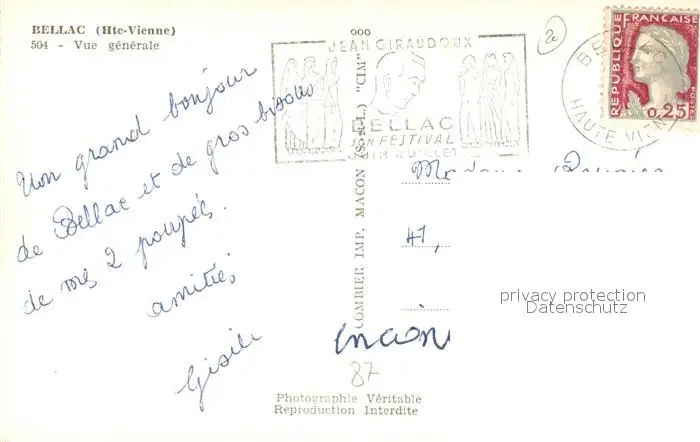 BELLAC (Hte-Vienne)
504 - Vue générale
Un grand bonjour
de Bellac et de gros bisous
de mes 2 poupées.
amitiés
Gisèle
ooo
COMBIER IMP. MACON (S.-et-L.) "CIM"
JEAN GIRAUDOUX
BELLAC
SON FESTIVAL
JUIN JUILLET
REPUBLIQUE FRANÇAISE
POSTES
0,25
HAUTE VIENNE
Madame
47,
87
privacy protection
Datenschutz
Photographie Véritable
Reproduction Interdite